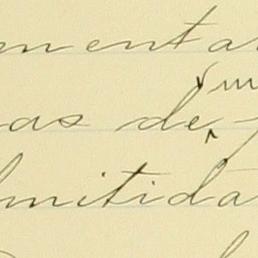 mentar
as de
mitida